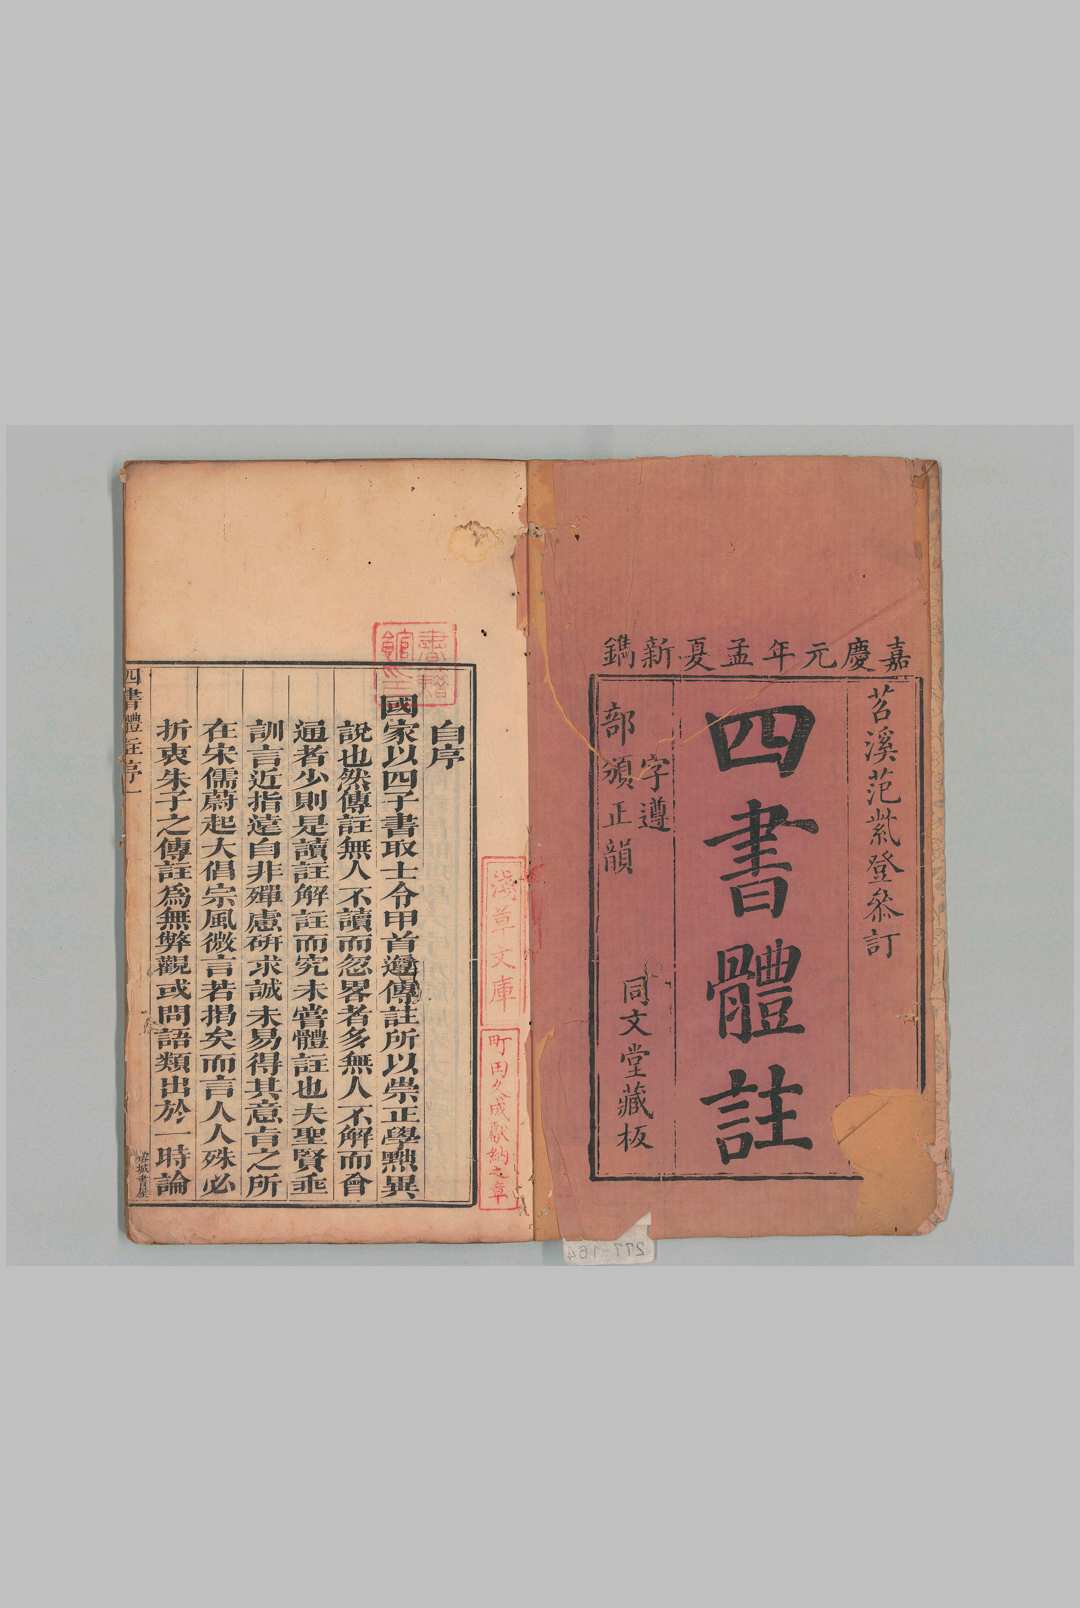 嘉慶元年孟夏新鐫
苕溪范紫登叅訂
四書體註
字遵
部頒正韻
同文堂藏板
自序
國家以四子書取士令甲首遵傳註所以崇正學黜異
說也然傳註無人不讀而忽畧者多無人不解而會
通者少則是讀註解註而究未嘗體註也夫聖賢垂
訓言近指遠自非殫慮研求誠未易得其意旨之所
在宋儒蔚起大倡宗風微言若揭矣而言人人殊必
折衷朱子之傳註爲無弊觀或問語類出於一時論
四書體註序一
書籍館印
淺草文庫
町田久成獻納之章
277-164